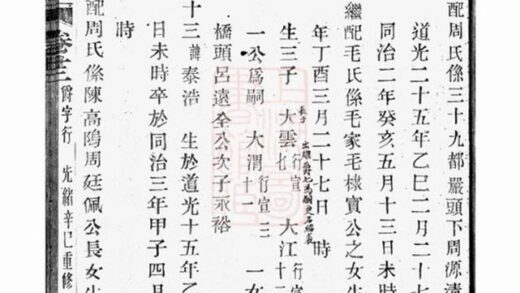 配周氏係三十九都嚴頭下周源清
道光二十五年乙巳二月二十七
同治二年癸亥五月十三日未時
繼配毛氏係毛家毛棣賓公之女生
年丁酉三月二十七日　時
長子
生三子　大雲行宣七　大江行宣
一公爲嗣　大渭行宣十一　一女
橋頭呂遠全公次子永裕
十三諱泰浩　生於道光十五年乙
日未時卒於同治三年甲子四月
時
配周氏係陳高隝周廷佩公長女生
卷廿三　爵字行　光緒辛巳重修